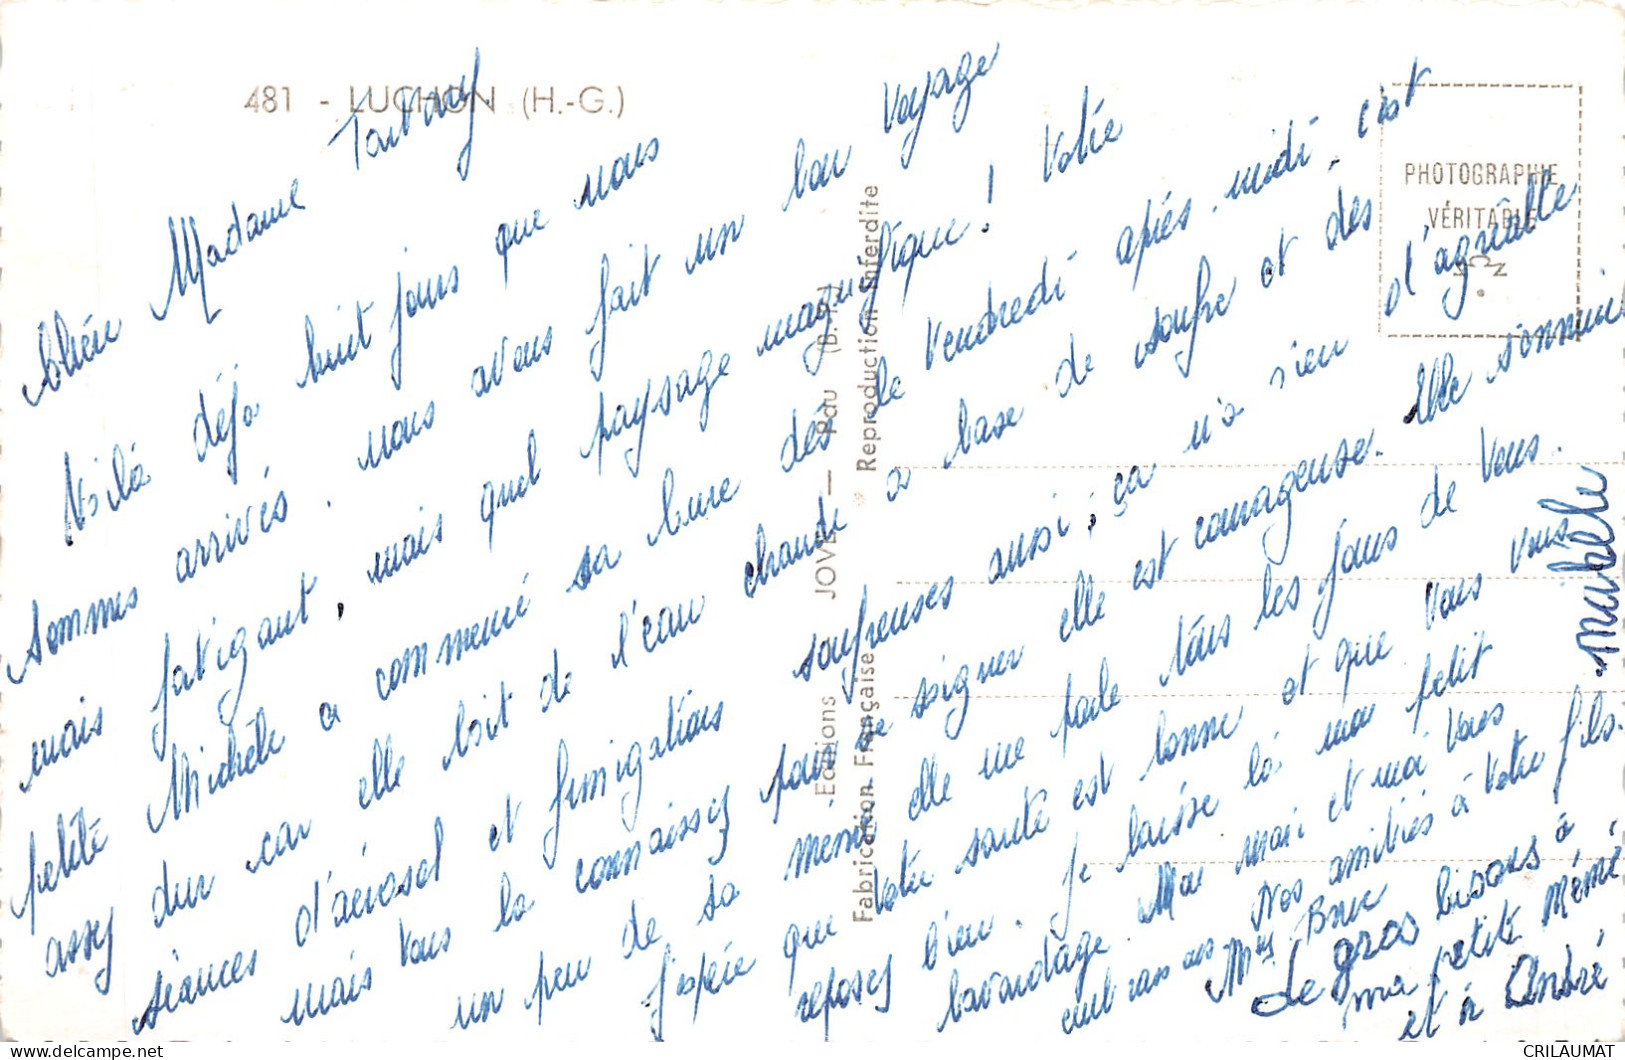 481 - LUCHON (H.-G.)
Chère Madame Tartary
Voilà déjà huit jours que nous
sommes arrivés. nous avons fait un bon voyage
mais fatigant, mais quel paysage magnéfique! Votre
petite Michèle a commencé sa cure dès le Vendredi après-midi, c'est
assez dur car elle boit de l'eau chaude a base de soufre et des
séances d'aérosol et fumigations soufreuses aussi; ça n'a rien d'agréable
mais vous la connaissez pour se soigner elle est courageuse. Elle s'ennuie
un peu de sa mémé elle me parle tous les jours de Vous.
J'espère que Votre santé est bonne et que Vous Vous
reposez bien. Je laisse là mon petit
bavardage Mon mari et moi Vous
embrassons Nos amitiés à Votre fils.
Mme Bruc
De gros bisous à
ma petite Mémé
et à André
Michèle
PHOTOGRAPHIE
VÉRITABLE
Editions JOVE — Pau (B.-P.)
Fabrication Française Reproduction Interdite
CRILAUMAT